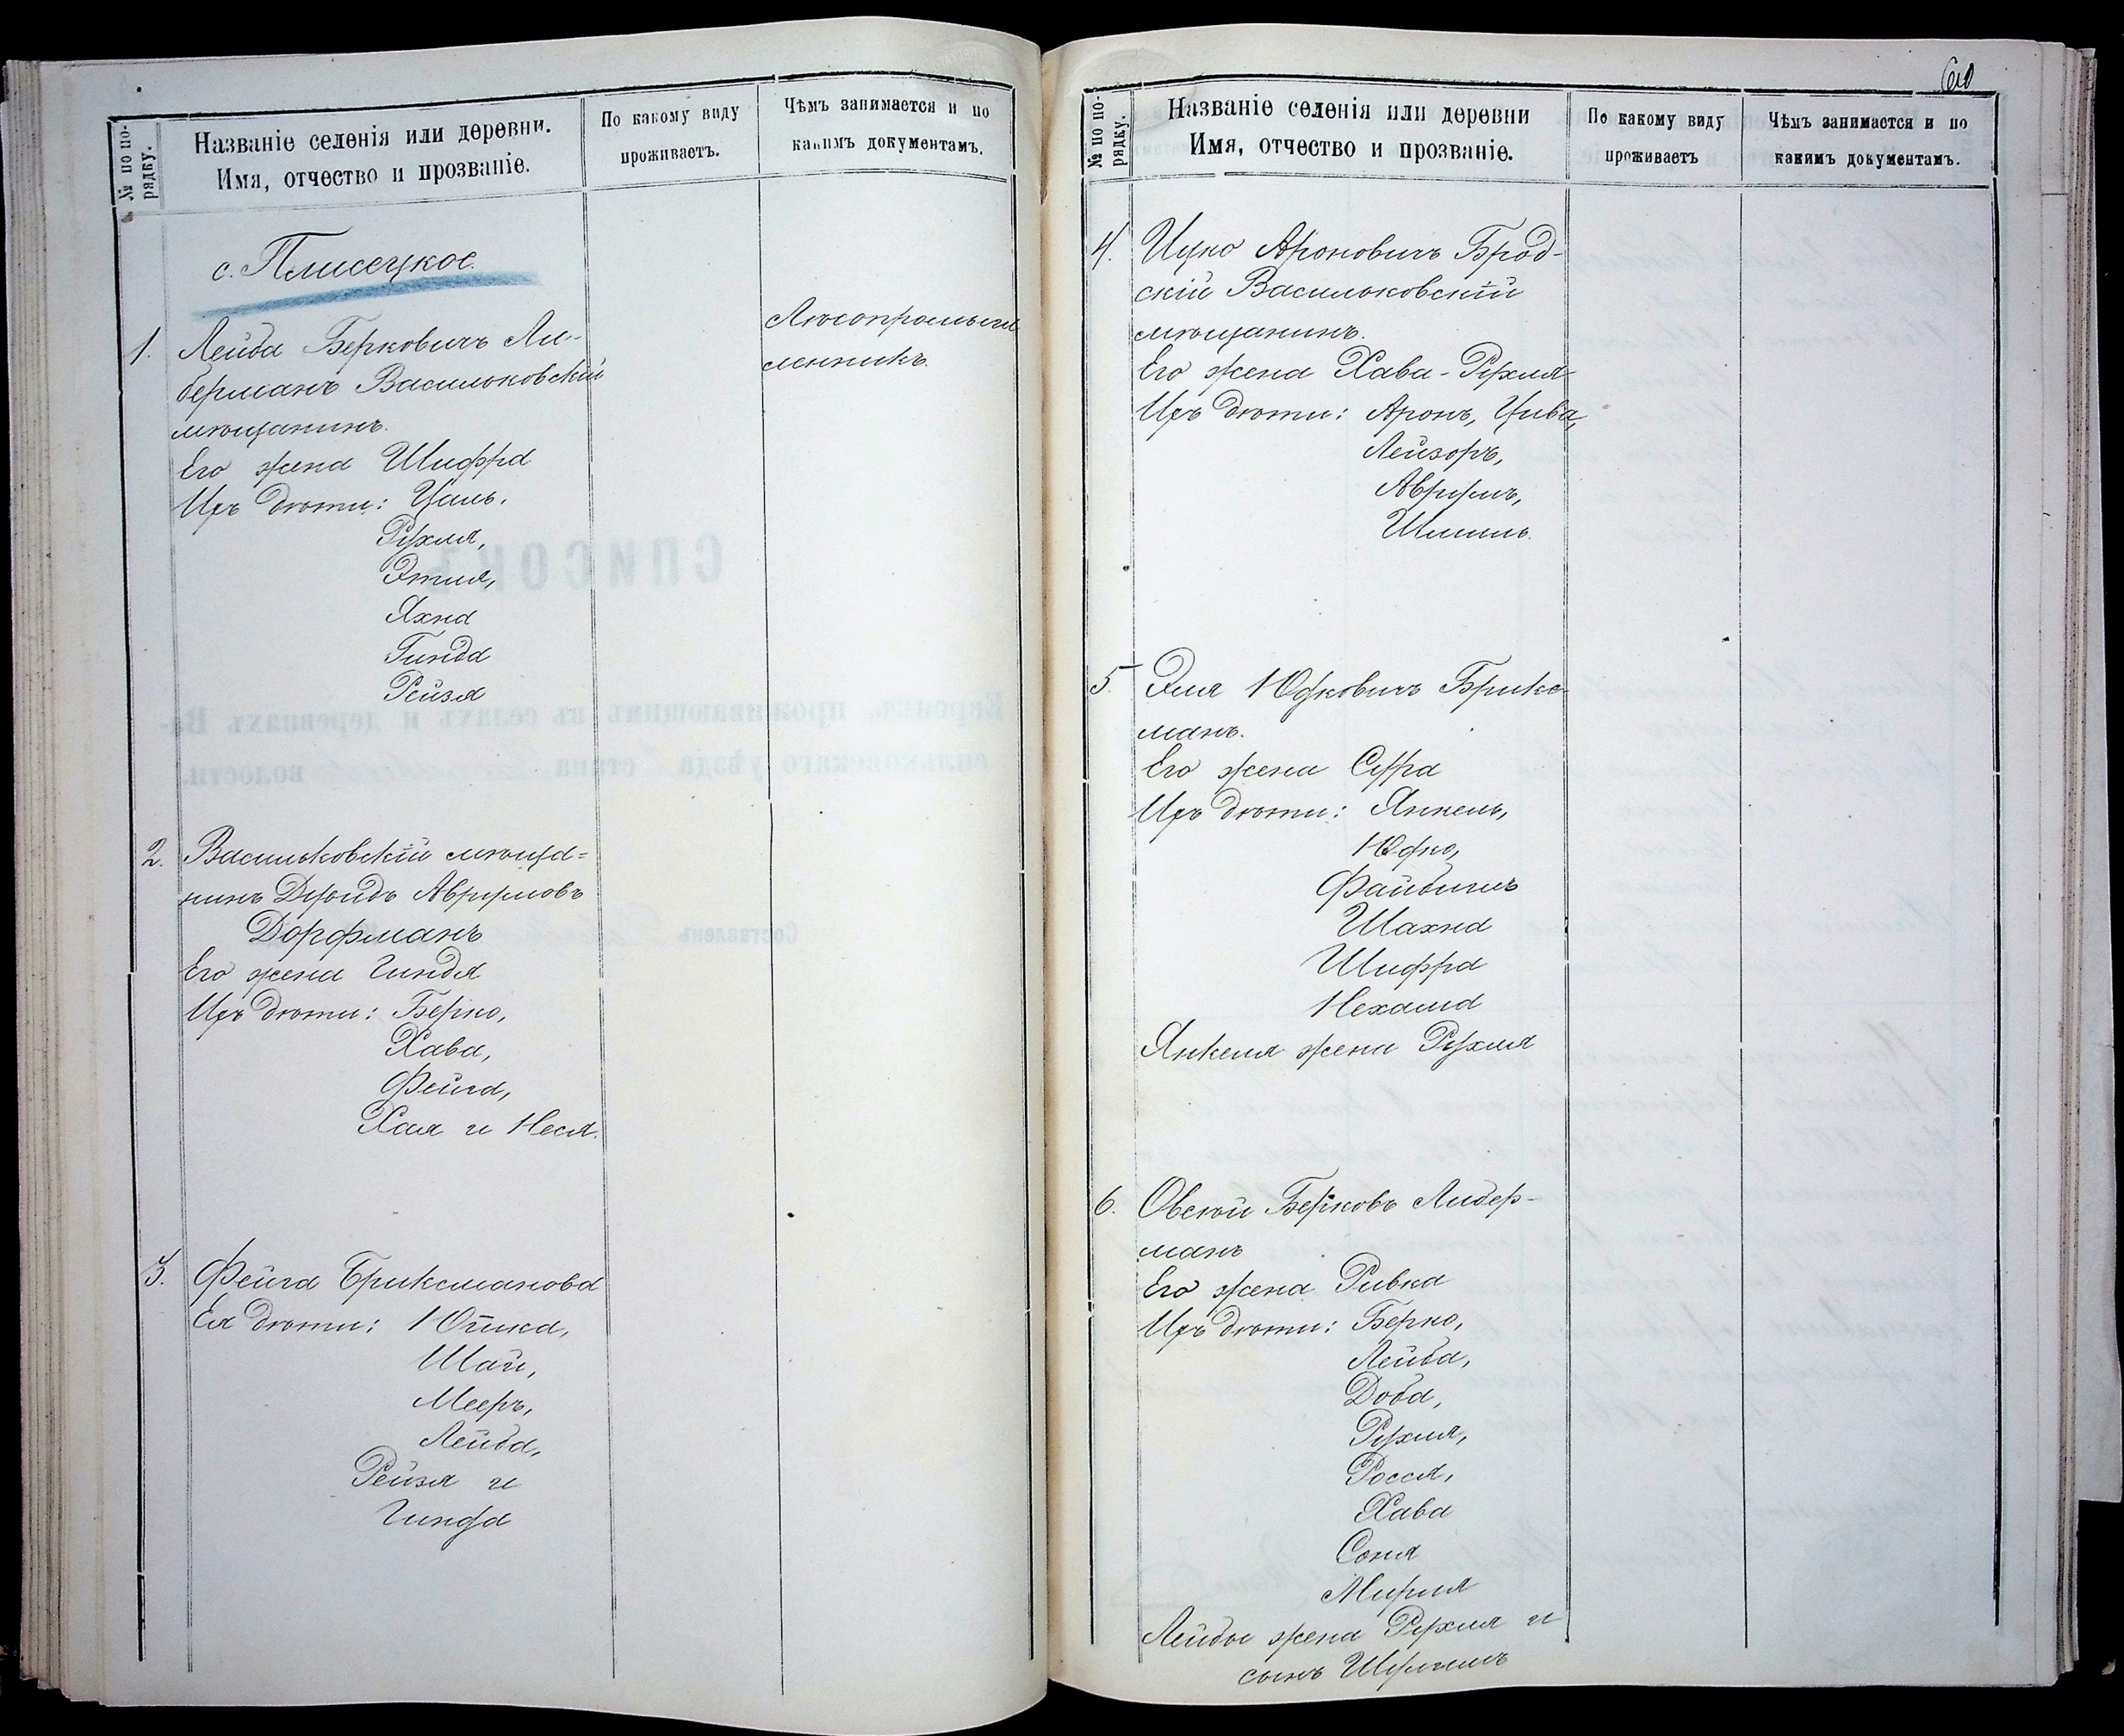 № по по-
рядку.
Названіе селенія или деревни.
Имя, отчество и прозваніе.
По какому виду
проживаетъ.
Чѣмъ занимается и по
какимъ документамъ.
с. Плисецкое.
1. Лейба Берковичъ Ли-
берманъ Васильковскій
мѣщанинъ.
Его жена Шифра
Ихъ дѣти: Цаль,
Рухля,
Этля,
Яхна
Гинда
Рейзя
Лѣсопромыш
ленникъ.
2. Васильковскій мѣща=
нинъ Дувидъ Аврумовъ
Дорфманъ
Его жена Гиндя
Ихъ дѣти: Берко,
Хава,
Фейга,
Хая и Неся.
3. Фейга Бриксманова
Ея дѣти: Юшка,
Шая,
Мееръ,
Лейба,
Рейзя и
Гинда
60
№ по по-
рядку.
Названіе селенія или деревни
Имя, отчество и прозваніе.
По какому виду
проживаетъ
Чѣмъ занимается и по
какимъ документамъ.
4. Ицко Ароновичъ Брод-
скій Васильковскій
мѣщанинъ.
Его жена Хава-Рухля
Ихъ дѣти: Аронъ, Цива,
Лейзоръ,
Аврумъ,
5. Эля Юфковичъ Брикс-
манъ.
Его жена Сура
Ихъ дѣти: Янкель,
Юфко,
Файбишъ
Шахна
Шифра
Нехама
Янкеля жена Рухля
6. Овсѣй Берковъ Либер-
манъ
Его жена Ривка
Ихъ дѣти: Берко,
Лейба,
Доба,
Рухля,
Росся,
Хава
Соня
Лейбы жена Рухля и
сынъ